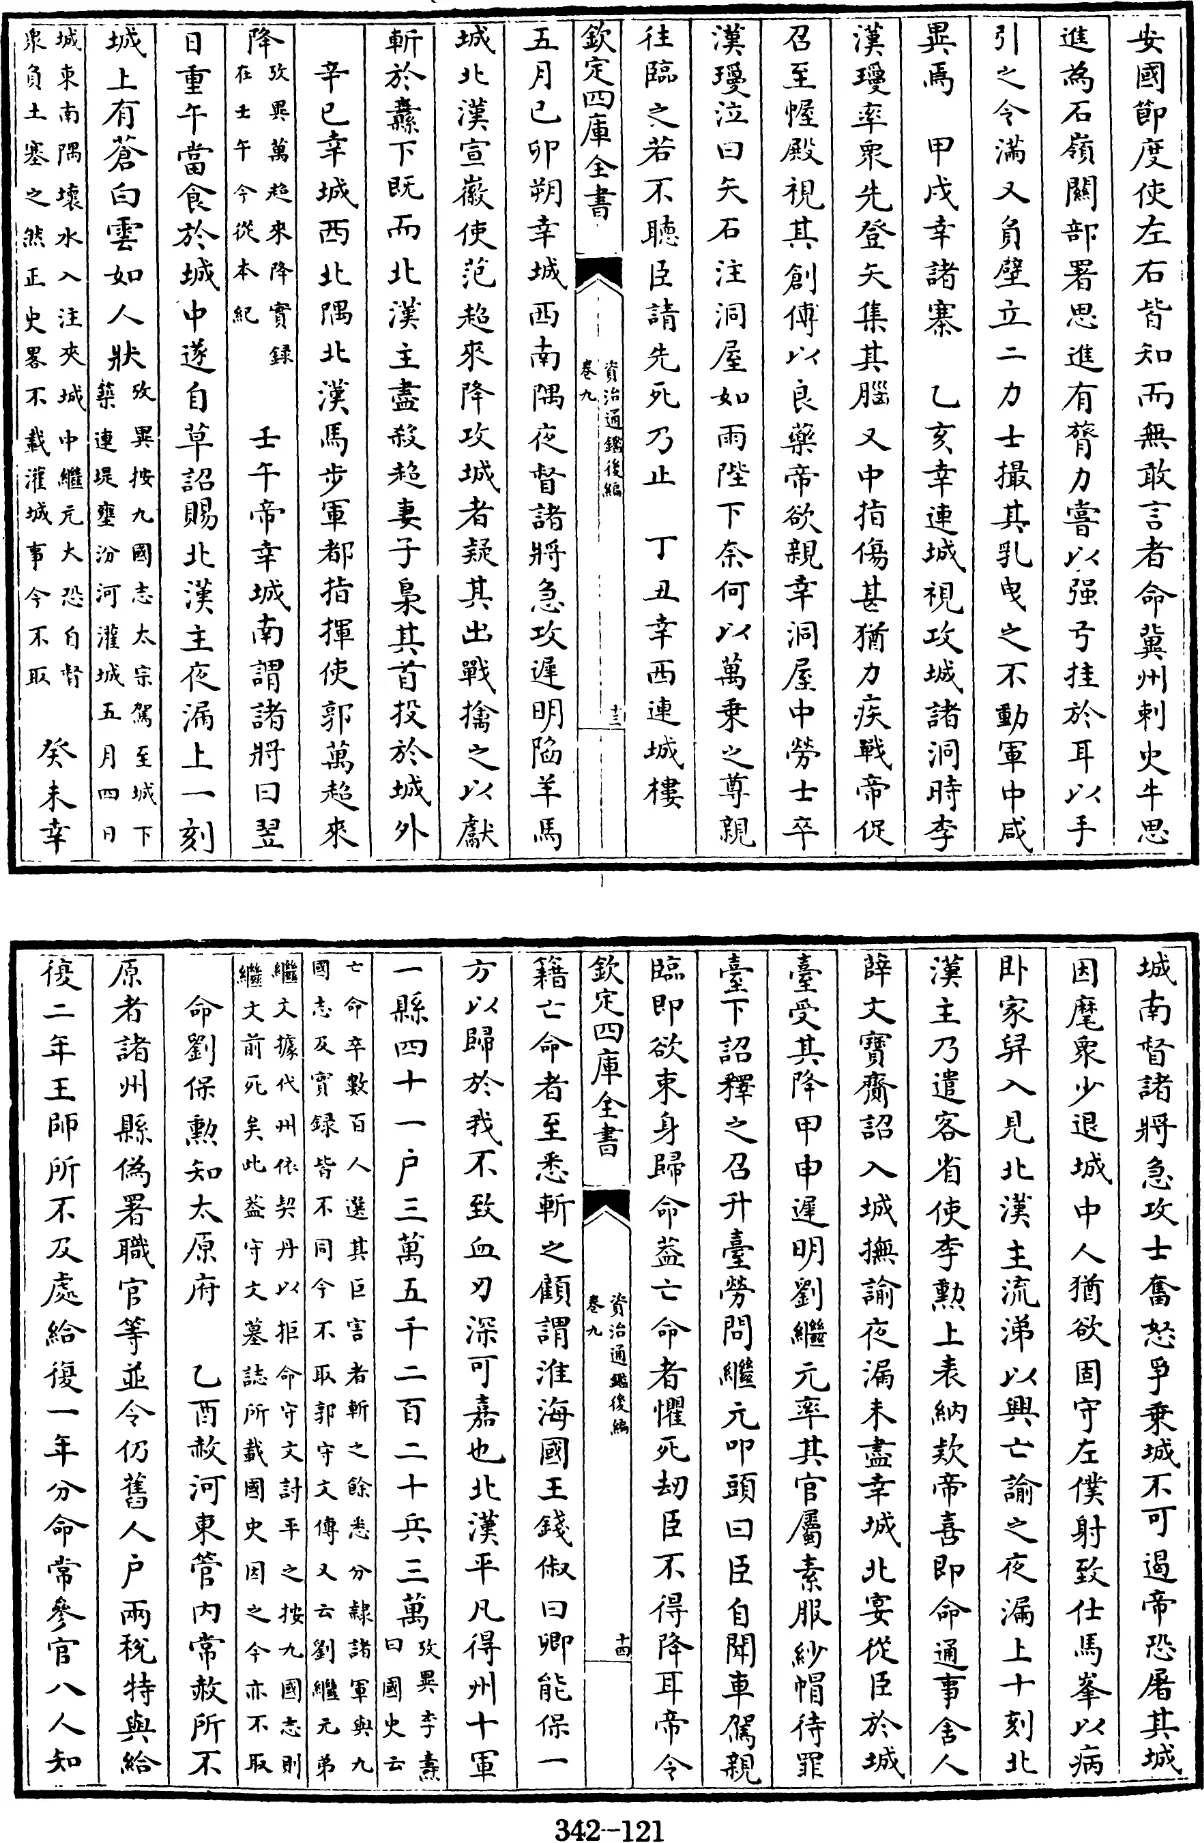 安國節度使左右皆知而無敢言者命冀州刺史牛思
進為石嶺關部署思進有膂力嘗以强弓挂於耳以手
引之令滿又負壁立二力士撮其乳曳之不動軍中咸
異焉　甲戌幸諸寨　乙亥幸連城視攻城諸洞時李
漢瓊率衆先登矢集其腦又中指傷甚猶力疾戰帝促
召至幄殿視其創傅以良藥帝欲親幸洞屋中勞士卒
漢瓊泣曰矢石注洞屋如雨陛下奈何以萬乘之尊親
往臨之若不聽臣請先死乃止　丁丑幸西連城樓
欽定四庫全書　資治通鑑後編卷九　十三
五月己卯朔幸城西南隅夜督諸將急攻遲明陷羊馬
城北漢宣徽使范超來降攻城者疑其出戰擒之以獻
斬於纛下既而北漢主盡殺超妻子梟其首投於城外
辛巳幸城西北隅北漢馬步軍都指揮使郭萬超來
降攷異萬超來降實錄在壬午今從本紀　壬午帝幸城南謂諸將曰翌
日重午當食於城中遂自草詔賜北漢主夜漏上一刻
城上有蒼白雲如人狀攷異按九國志太宗駕至城下築連堤壅汾河灌城五月四日
城東南隅壞水入注夾城中繼元大恐自督衆負土塞之然正史畧不載灌城事今不取　癸未幸
城南督諸將急攻士奮怒爭乘城不可遏帝恐屠其城
因麾衆少退城中人猶欲固守左僕射致仕馬峯以病
卧家舁入見北漢主流涕以興亡諭之夜漏上十刻北
漢主乃遣客省使李勲上表納欵帝喜即命通事舍人
薛文寶齎詔入城撫諭夜漏未盡幸城北宴從臣於城
臺受其降甲申遲明劉繼元率其官屬素服紗帽待罪
臺下詔釋之召升臺勞問繼元叩頭曰臣自聞車駕親
臨即欲束身歸命葢亡命者懼死刼臣不得降耳帝令
欽定四庫全書　資治通鑑後編卷九　十四
籍亡命者至悉斬之顧謂淮海國王錢俶曰卿能保一
方以歸於我不致血刃深可嘉也北漢平凡得州十軍
一縣四十一户三萬五千二百二十兵三萬攷異李燾曰國史云
亡命卒數百人選其巨害者斬之餘悉分隸諸軍與九國志及實録皆不同今不取郭守文傳又云劉繼元弟
繼文據代州依契丹以拒命守文討平之按九國志則繼文前死矣此葢守文墓誌所載國史因之今亦不取
命劉保勲知太原府　乙酉赦河東管内常赦所不
原者諸州縣偽署職官等並令仍舊人户兩稅特與給
復二年王師所不及處給復一年分命常參官八人知
342-121